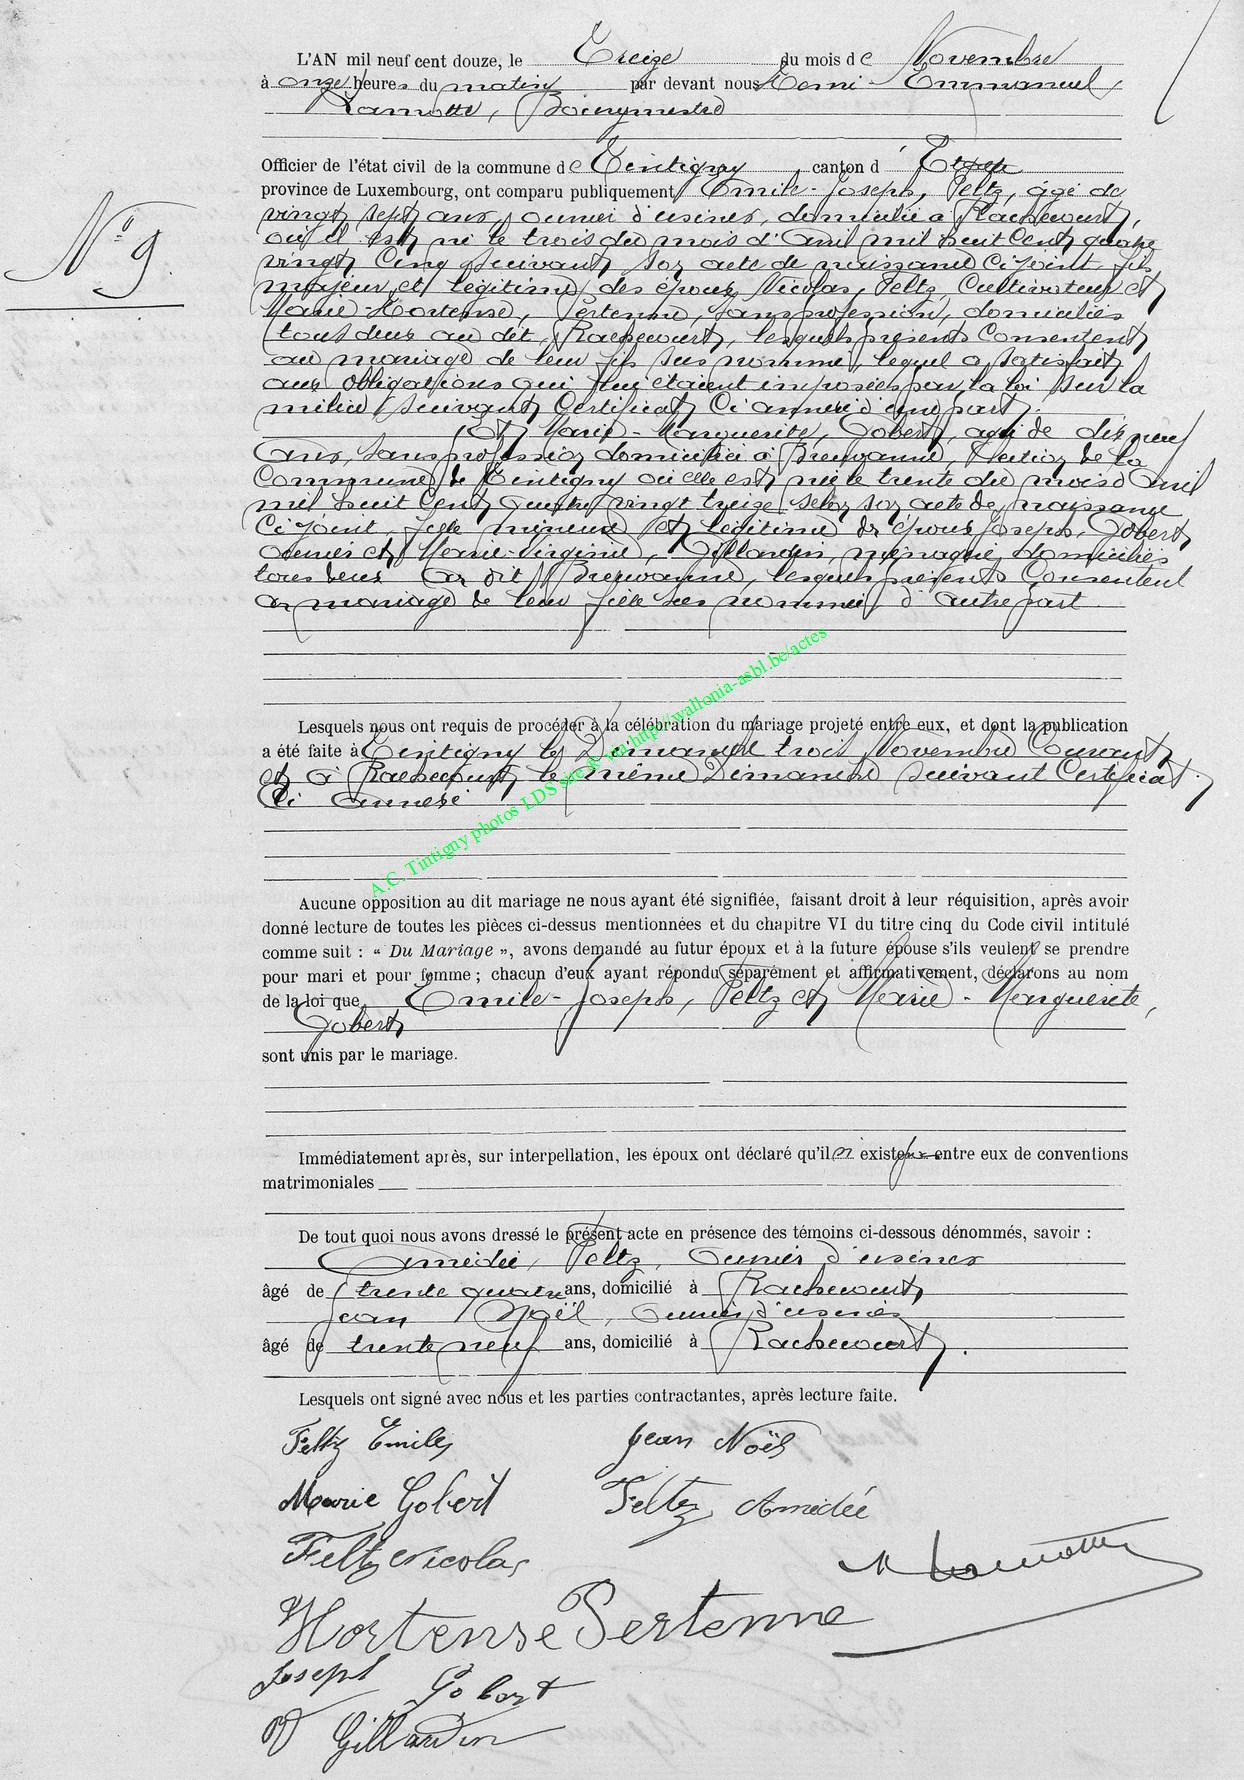 L'AN mil neuf cent douze, le Treize du mois de Novembre
à onze heures du matin par devant nous Remi-Emmanuel,
Lamotte, Bourgmestre
Officier de l'état civil de la commune de Tintigny canton d'
province de Luxembourg, ont comparu publiquement Emile-Joseph, Feltz, âgé de
vingt sept ans, ouvrier d'usines, domicilié à Rachecourt,
où il est né le trois du mois d'Avril mil huit cent quatre
vingt cinq suivant son acte de naissance ci joint, fils
majeur et légitime des époux Nicolas, Feltz, Cultivateur et
Marie-Hortense, Pertenne, sans profession, domiciliés
tous deux au dit, Rachecourt, lesquels présents consentent
au mariage de leur fils sus nommé, lequel a satisfait
aux obligations qui lui étaient imposées par la loi sur la
milice suivant certificat ci annexé d'une part.
Et Marie-Marguerite, Gobert, agée de dix neuf
ans, sans profession domiciliée à Breuvanne, section de la
Commune de Tintigny où elle est née le trente du mois d'Avril
mil huit cent quatre vingt treize selon son acte de naissance
ci joint, fille mineure et légitime des époux Joseph, Gobert,
ouvrier et Marie-Virginie, Gillardin, ménagère, domiciliés
tous deux au dit Breuvanne, lesquels présents consentent
au mariage de leur fille sus nommée, d'autre part.
Lesquels nous ont requis de procéder à la célébration du mariage projeté entre eux, et dont la publication
a été faite à Tintigny le Dimanche trois Novembre Courant
et à Rachecourt le même Dimanche suivant Certificat
ci annexé
A.C. Tintigny photos LDS site & via http://wallonia-asbl.be/actes
Aucune opposition au dit mariage ne nous ayant été signifiée, faisant droit à leur réquisition, après avoir
donné lecture de toutes les pièces ci-dessus mentionnées et du chapitre VI du titre cinq du Code civil intitulé
comme suit : « Du Mariage », avons demandé au futur époux et à la future épouse s'ils veulent se prendre
pour mari et pour femme ; chacun d'eux ayant répondu séparément et affirmativement, déclarons au nom
de la loi que Emile-Joseph, Feltz et Marie-Marguerite,
Gobert
sont unis par le mariage.
Immédiatement après, sur interpellation, les époux ont déclaré qu'il n'existe pas entre eux de conventions
matrimoniales
De tout quoi nous avons dressé le présent acte en présence des témoins ci-dessous dénommés, savoir :
Amédée, Feltz, Ouvrier d'usines
âgé de trente quatre ans, domicilié à Rachecourt
Jean Noël, Ouvrier d'usines
âgé de trente neuf ans, domicilié à Rachecourt.
Lesquels ont signé avec nous et les parties contractantes, après lecture faite.
Feltz Emile
Jean Noël
Marie Gobert
Feltz Amédée
Feltz Nicolas
R Lamotte
Hortense Pertenne
Joseph Gobert
V Gillardin
N° 9.